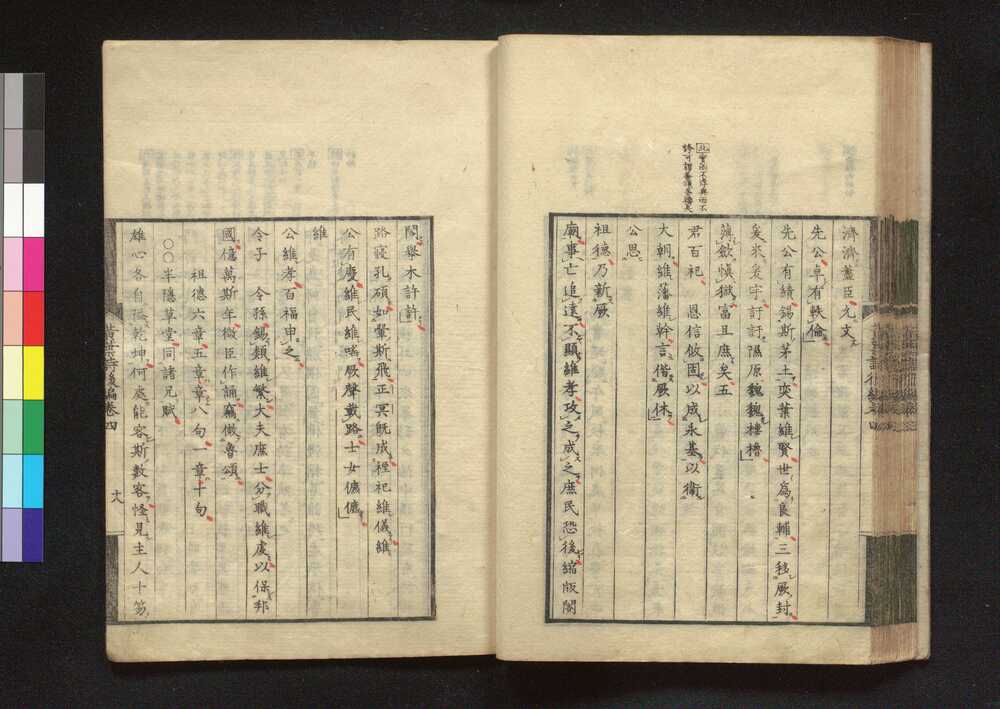 濟濟藎臣允文
先公卓有軼倫
先公有績錫斯茅土奕葉維賢世爲良輔三移厥封
爰來爰宇訏訏隰原巍巍樓櫓
斂愼獄富且庶矣五
君百祀 恩信攸固以成永基以衞
大朝維藩維幹言偕厥休
公思
祖德乃新厥
廟事亡追達不顯維孝攻之成之庶民恐後縮版閣
閣擧木許許
路寢孔碩如翬斯飛正冥旣成禋祀維儀維
公有慶維民維嘻厥聲載路士女儦儦
維
公維孝百福申之
令子 令孫錫類維繁大夫庶士分職維虔以保邦
國億萬斯年微臣作誦竊倣魯頌
祖德六章五章章八句一章十句
○○半隱草堂同諸兄賦
雄心各自隘乾坤何處能容斯數客怪見主人十笏
黃葉詩後編卷四